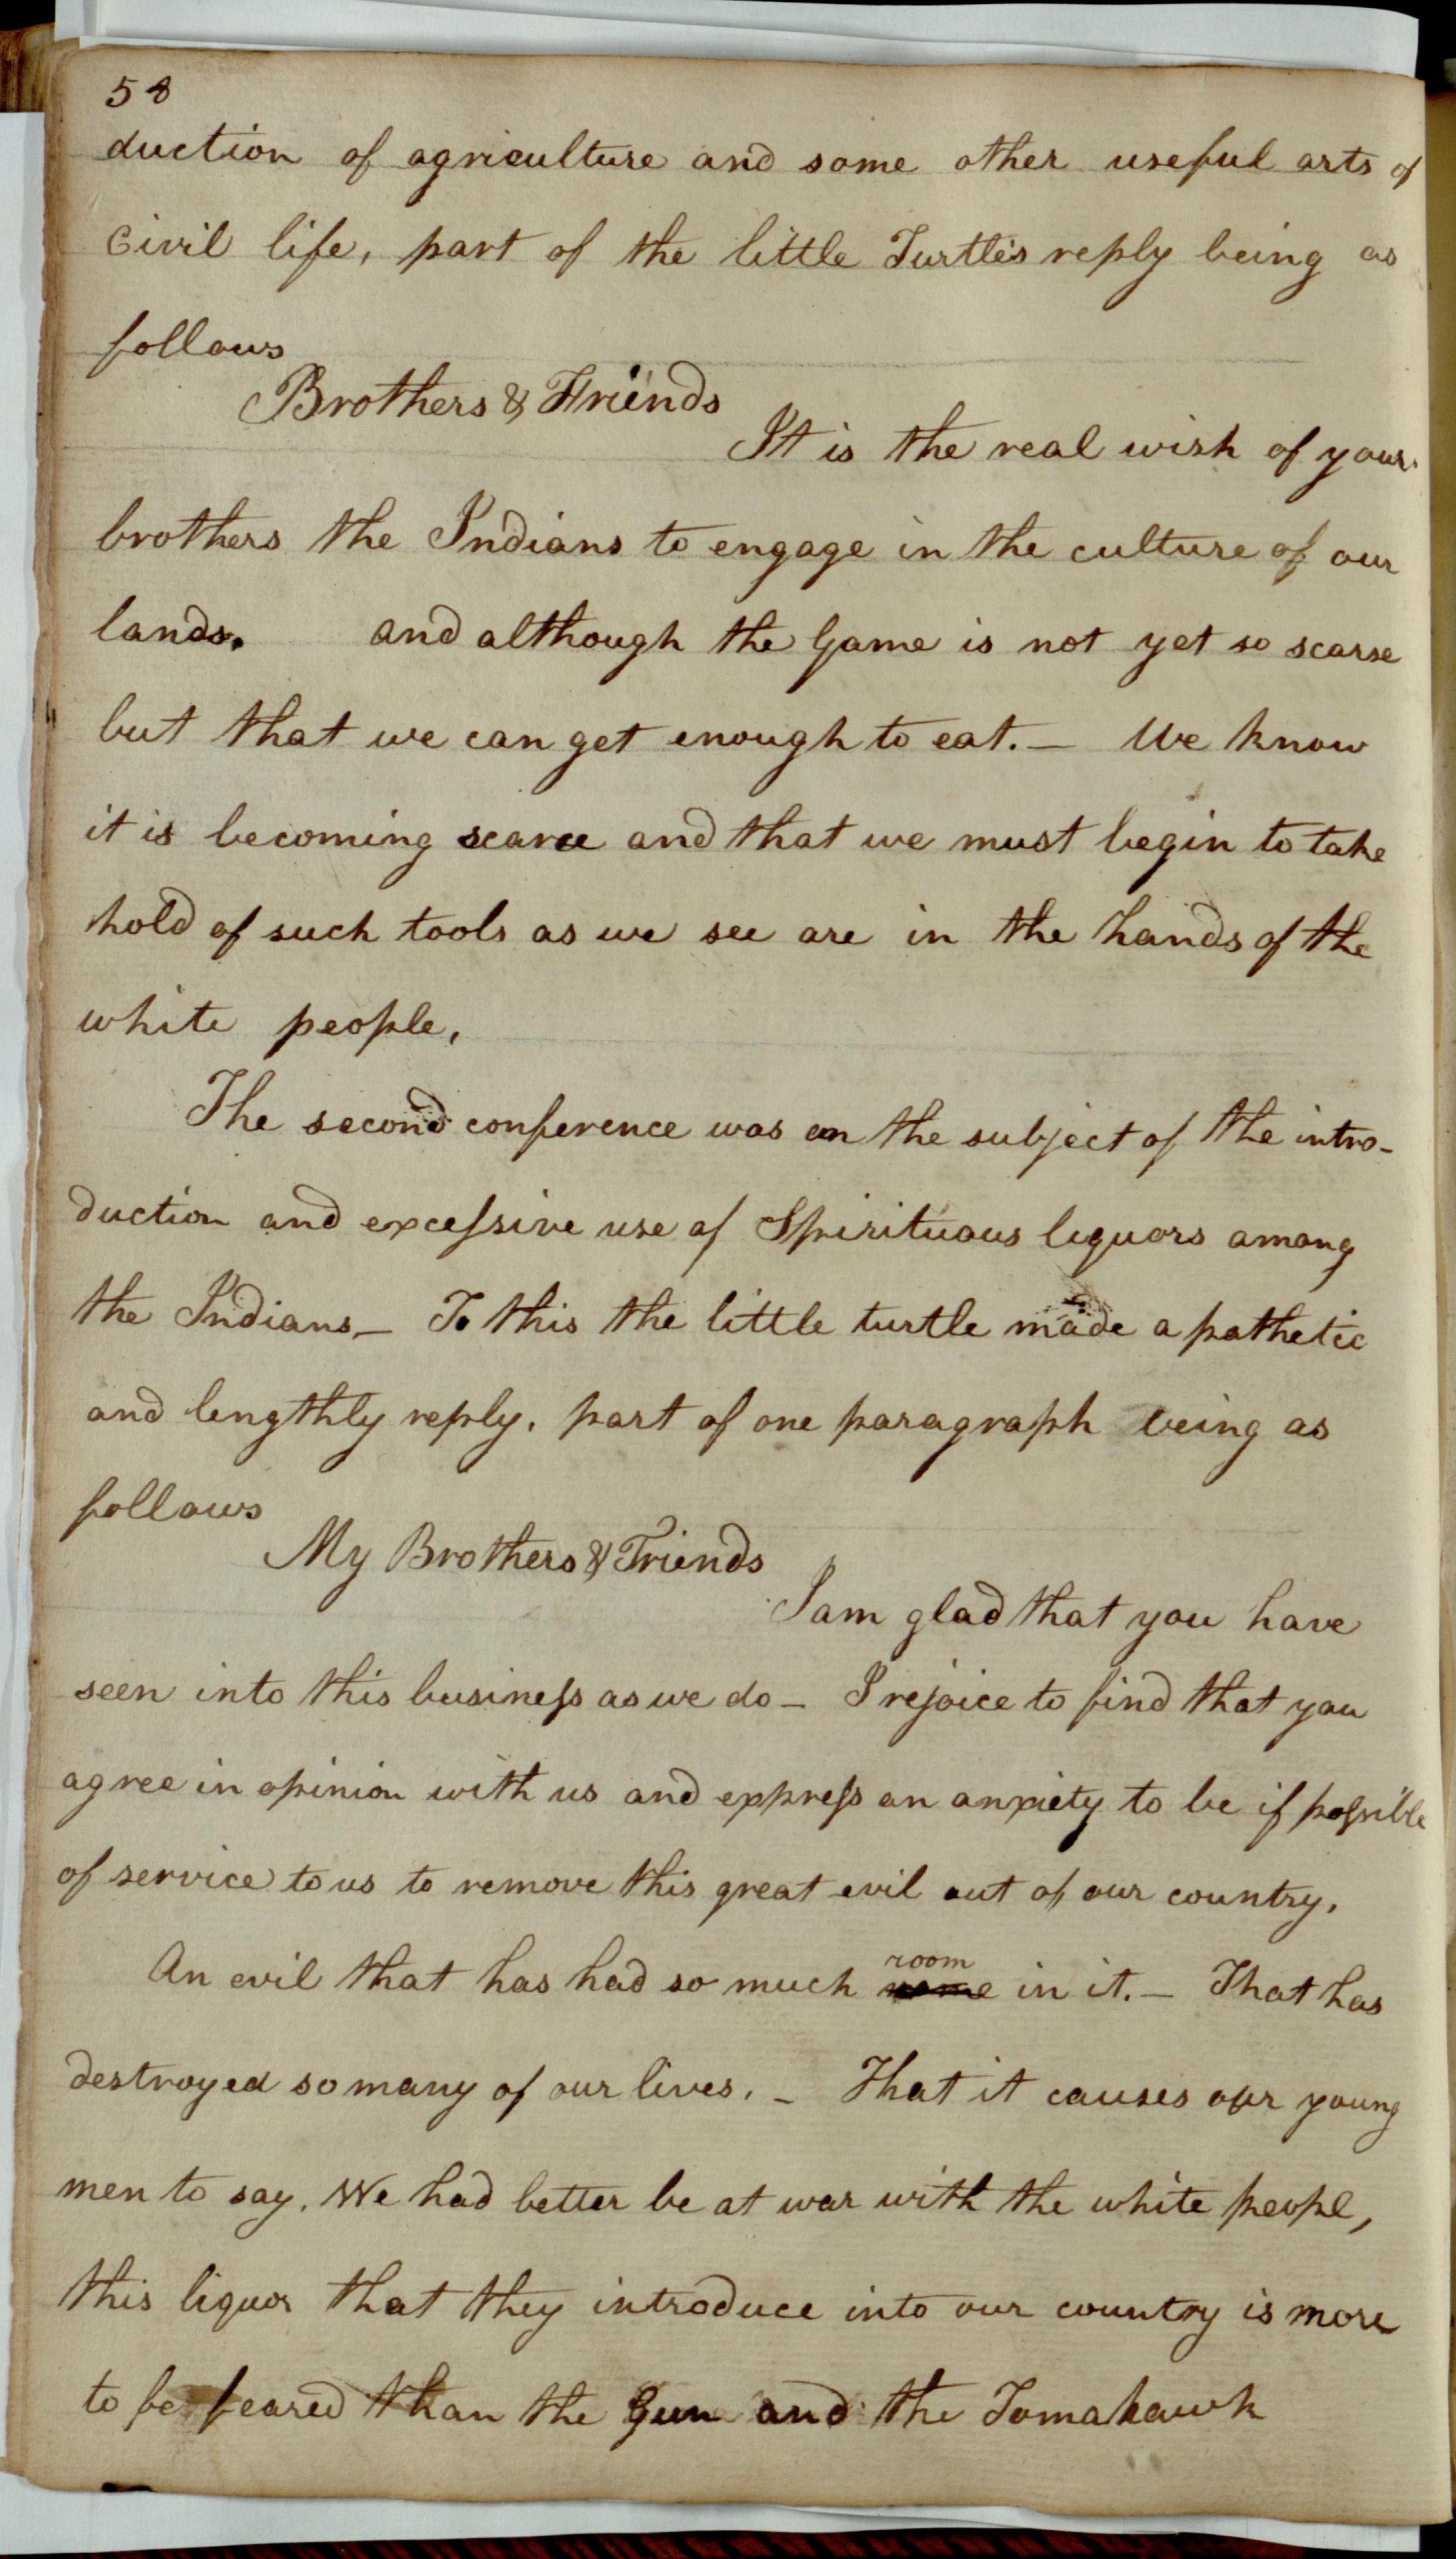 58
duction of agriculture and some other useful arts of
Civil life, part of the little Turtle's reply being as
follows
Brothers & Friends
It is the real wish of your
brothers the Indians to engage in the culture of our
lands. and although the Game is not yet so scarse
but that we can get enough to eat. — We know
it is becoming scarce and that we must begin to take
hold of such tools as we see are in the hands of the
white people,
The second conference was on the subject of the intro-
duction and excessive use of Spirituous liquors among
the Indians — To this the little turtle made a pathetic
and lengthly reply, part of one paragraph being as
follows
My Brothers & Friends
I am glad that you have
seen into this business as we do — I rejoice to find that you
agree in opinion with us and express an anxiety to be if possible
of service to us to remove this great evil out of our country,
An evil that has had so much room in it. — That has
destroyed so many of our lives. — That it causes our young
men to say, We had better be at war with the white peopl,
this liquor that they introduce into our country is more
to be feared than the Gun and the Tomahawk